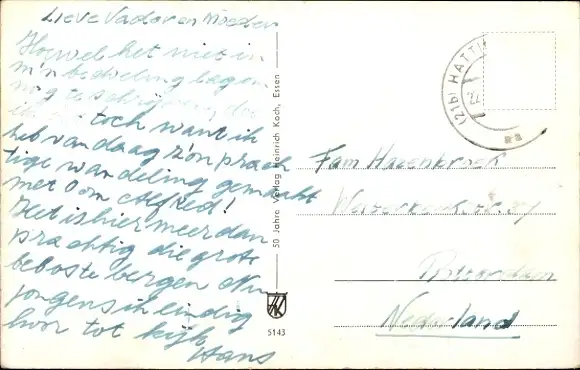 Lieve Vader en Moeder
Hoewel het niet in
m'n bedoeling lag om
nog te schrijven, doe
ik toch want ik
heb vandaag z'on prach
tige wandeling gemaakt
met Oom Alfred!
Het is hier meer dan
prachtig die grote
beboste bergen Nu
jongens ik eindig
hoor tot kijk
Hans
50 Jahre Verlag Heinrich Koch, Essen
5143
(21b) HATTIN
Fam Hazenbroek
Nederland